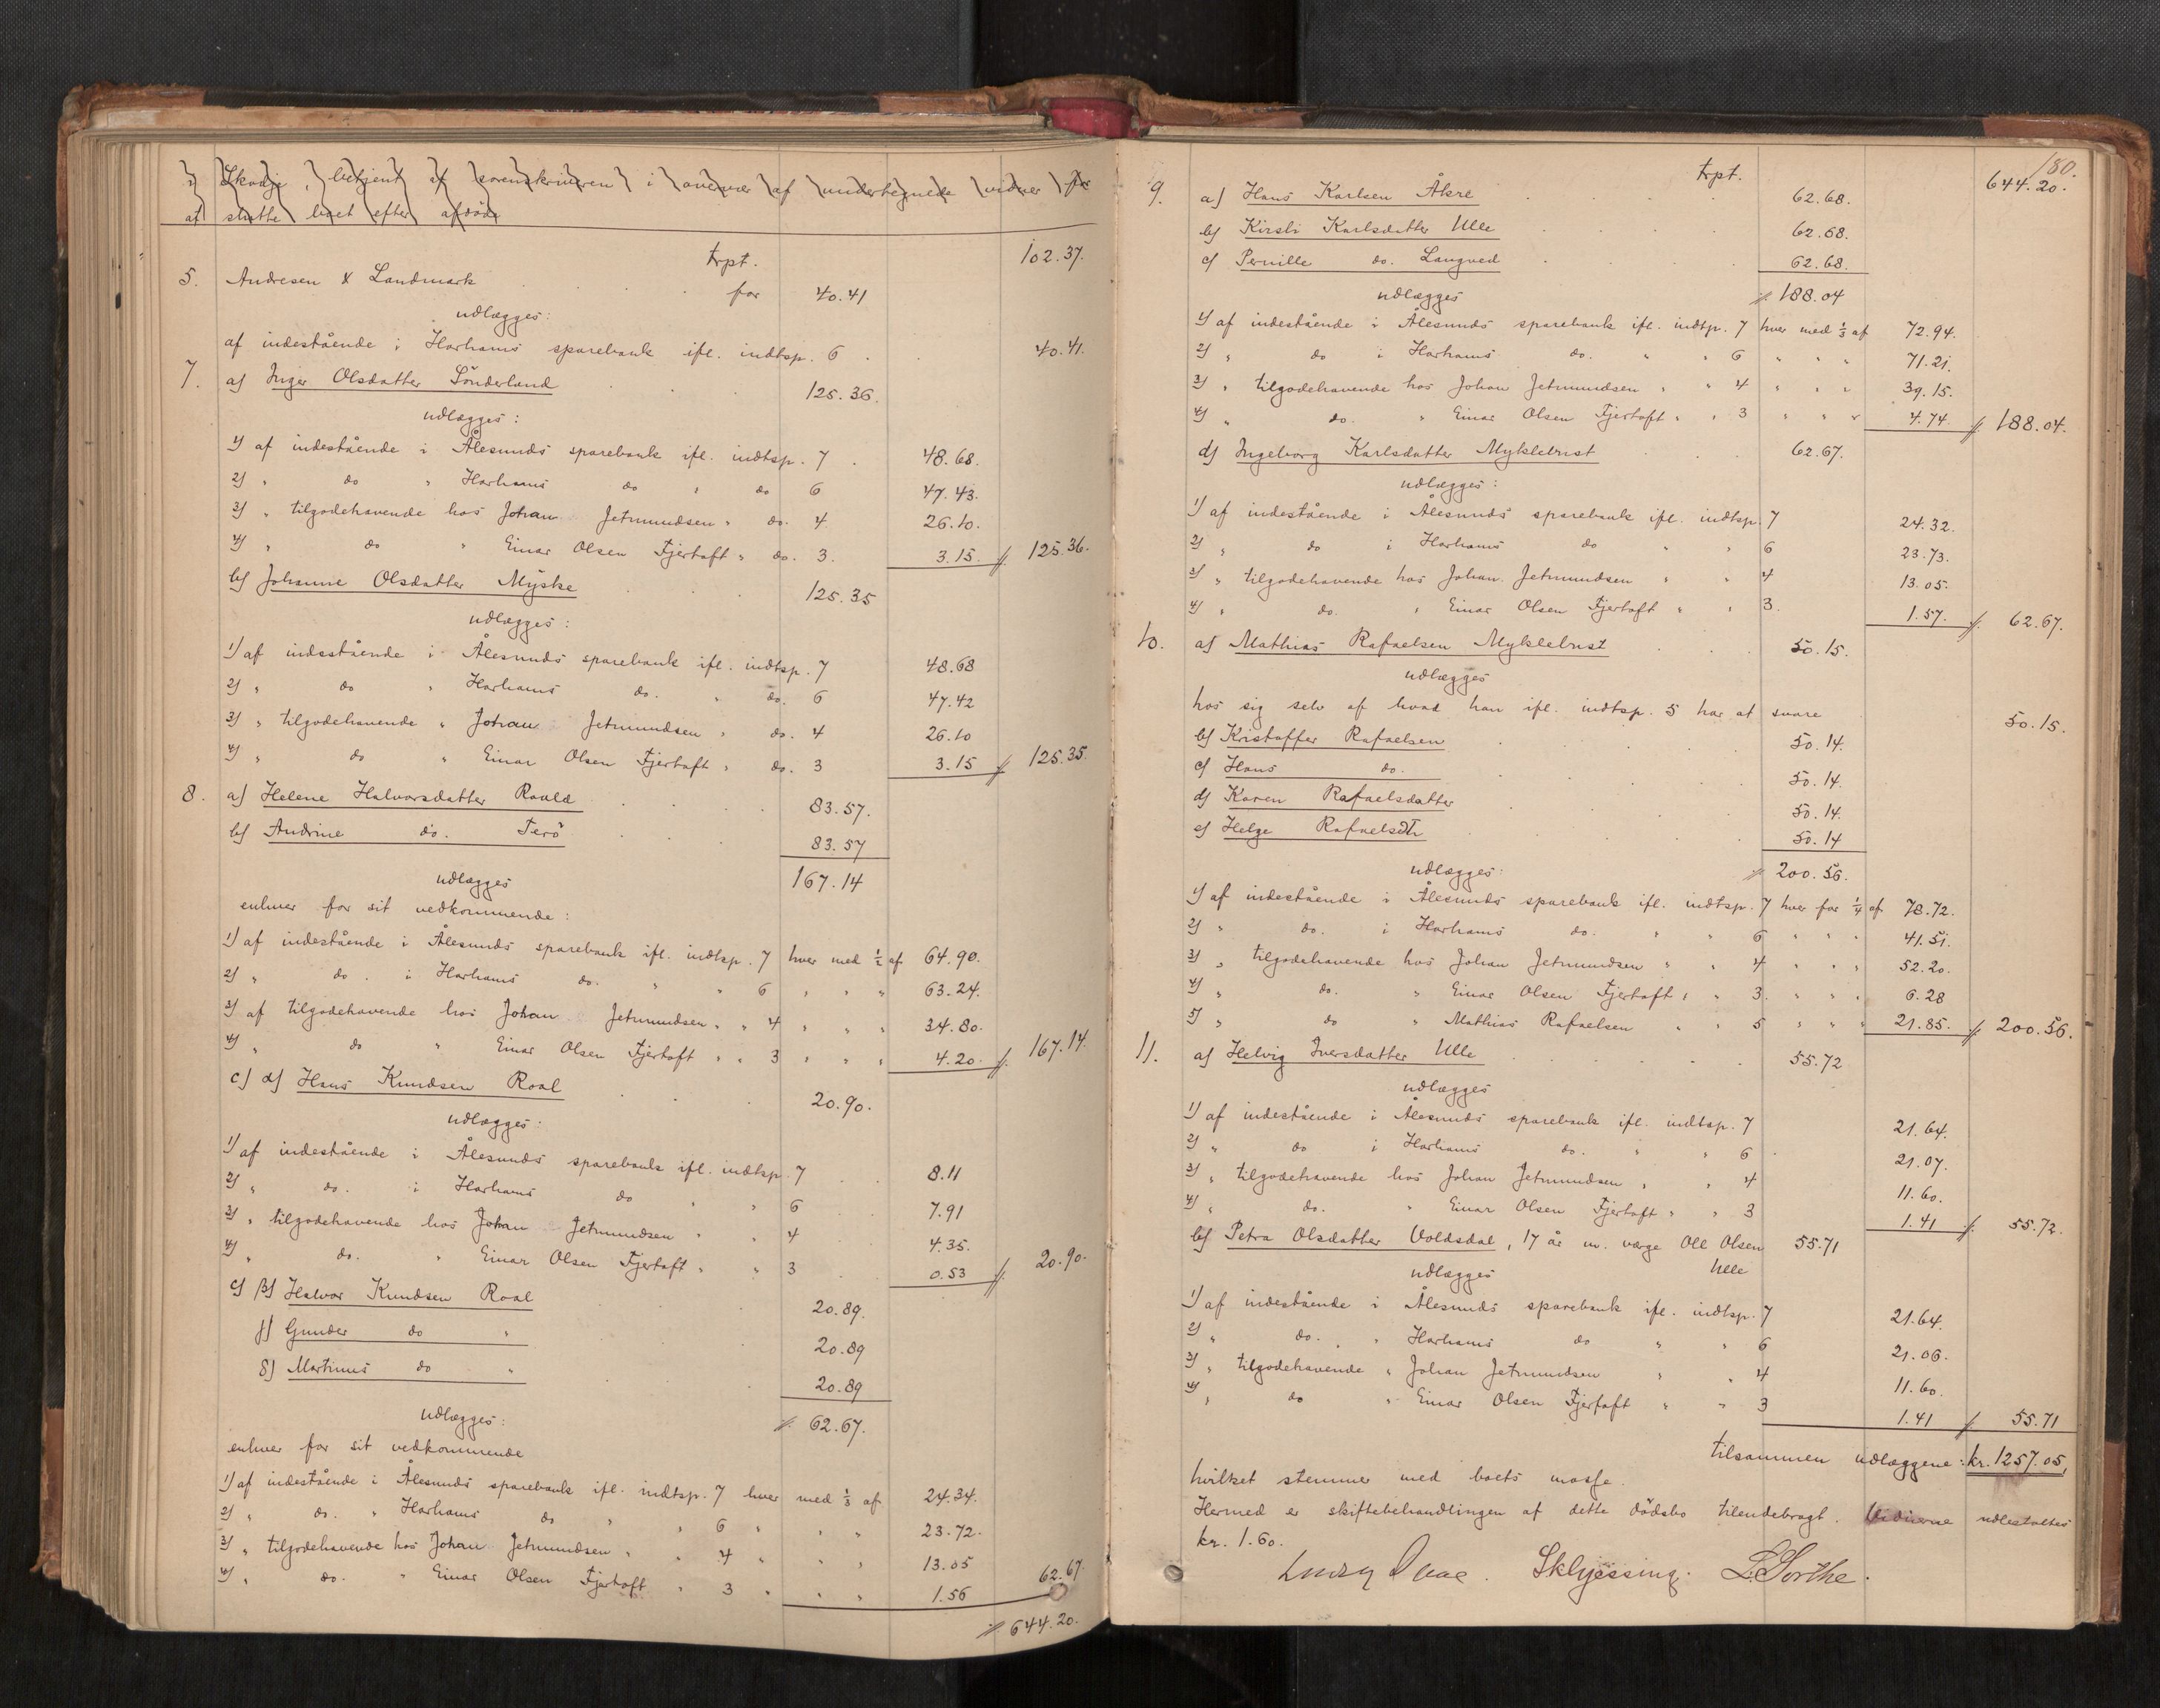 i Skodje, betjent af sorenskriveren i overvær af undertegnede vidner for
at skifte boet efter afdøde
trpt. 102.37.
5. Andresen & Landmark . . . for 40.41
udlægges:
af indestående i Harhams sparebank ifl. indtsp. 6 . . 40.41.
7. a) Inger Olsdatter Sönderland . . 125.36.
udlægges:
1) af indestående i Ålesunds sparebank ifl. indtsp. 7 . 48.68.
2) " do " Harhams do " do 6 47.43.
3) " tilgodehavende hos Johan Jetmundsen " do. 4 26.10.
4) " do " Einar Olsen Fjertoft " do. 3. 3.15 // 125.36.
b) Johanne Olsdatter Myske . . . 125.35
udlægges:
1) af indestående i Ålesunds sparebank ifl. indtsp. 7 48.68
2) " do " Harhams do. " do. 6 47.42
3) " tilgodehavende " Johan Jetmundsen " do. 4 26.10
4) " do " Einar Olsen Fjertoft " do. 3 3.15 // 125.35.
8. a) Helene Halvorsdatter Roald . . . 83.57.
b) Andrine do. Terö . . . 83.57
udlægges 167.14
enhver for sit vedkommende:
1) af indestående i Ålesunds sparebank ifl. indtsp. 7 hver med ½ af 64.90.
2) " do. i Harhams do. " " 6 " " " 63.24.
3) af tilgodehavende hos Johan Jetmundsen " " 4 " " " 34.80.
4) " do " Einar Olsen Fjertoft " " 3 " " " 4.20. // 167.14.
c) α) Hans Knudsen Roal . . . 20.90.
udlægges:
1) af indestående i Ålesunds sparebank ifl. indtsp. 7 . . 8.11
2) " do. i Harhams do " " 6 . . 7.91
3) " tilgodehavende hos Johan Jetmundsen " " 4 . . 4.35.
4) " do. " Einar Olsen Fjertoft " " 3 . 0.53 // 20.90.
c) β) Halvor Knudsen Roal . . . 20.89.
γ) Gunder do " . . 20.89
δ) Martinus do " . . . 20.89
udlægges: // 62.67.
enhver for sit vedkommende
1) af indestående i Ålesunds sparebank ifl. indtsp. 7 hver med ⅓ af 24.34.
2) " do. " Harhams do " " 6 " " " 23.72.
3) " tilgodehavende hos Johan Jetmundsen " " 4 " " " 13.05
4) " do. " Einar Olsen Fjertoft " 3 " " " 1.56 62.67.
// 644.20.
180.
trpt. 644.20.
9. a) Hans Karlsen Åkre . . . . 62.68.
b) Kirsti Karlsdatter Ulle . . . . 62.68.
c) Pernille do. Langved . . . . 62.68.
udlægges // 188.04
1) af indestående i Ålesunds sparebank ifl. indtsp. 7 hver med ⅓ af 72.94.
2) " do i Harhams do. " " 6 " " " 71.21.
3) " tilgodehavende hos Johan Jetmundsen " " 4 " " " 39.15.
4) " do. " Einar Olsen Fjertoft " " 3 " " " 4.74 // 188.04.
d) Ingeborg Karlsdatter Myklebust . . . 62.67.
udlægges:
1) af indestående i Ålesunds sparebank ifl. indtsp. 7 24.32.
2) " do i Harhams do " " 6 23.73.
3) " tilgodehavende hos Johan Jetmundsen " " 4 13.05.
4) " do. " Einar Olsen Fjertoft " " 3. 1.57. // 62.67.
10. a) Mathias Rafaelsen Myklebust . . . 50.15.
udlægges
hos sig selv af hvad han ifl. indtsp. 5 har at svare 50.15.
b) Kristoffer Rafaelsen . . . . 50.14.
c) Hans do. . . . . 50.14.
d) Karen Rafaelsdatter . . . 50.14.
e) Helge Rafaelsdtr . . . . 50.14
udlægges: // 200.56.
1) af indestående i Ålesunds sparebank ifl. indtsp. 7 hver for ¼ af 78.72.
2) " do. i Harhams do. " " 6 " " " 41.51.
3) " tilgodehavende hos Johan Jetmundsen " " 4 " " " 52.20.
4) " do. " Einar Olsen Fjertoft " " 3. " " " 6.28
5) " do " Mathias Rafaelsen " " 5 " " " 21.85. // 200.56.
11. a) Helvig Iversdatter Ulle . . . . 55.72
udlægges
1) af indestående i Ålesunds sparebank ifl. indtsp. 7 21.64.
2) " do i Harhams do. " " 6 . 21.07.
3) " tilgodehavende hos Johan Jetmundsen " " 4 11.60.
4) " do. " Einar Olsen Fjertoft " " 3 1.41 // 55.72.
b) Petra Olsdatter Voldsdal, 17 år m. værge Ole Olsen 55.71
Ulle
udlægges
1) af indestående i Ålesunds sparebank ifl. indtsp. 7 21.64.
2) " do. " Harhams do " " 6 21.06.
3) " tilgodehavende " Johan Jetmundsen " " 4 11.60.
4) " do " Einar Olsen Fjertoft " " 3 1.41 // 55.71
tilsammen udlæggene: kr. 1257.05,
hvilket stemmer med boets masse.
Hermed er skiftebehandlingen af dette dödsbo tilendebragt. Vidnerne udbetaltes
kr. 1.60.